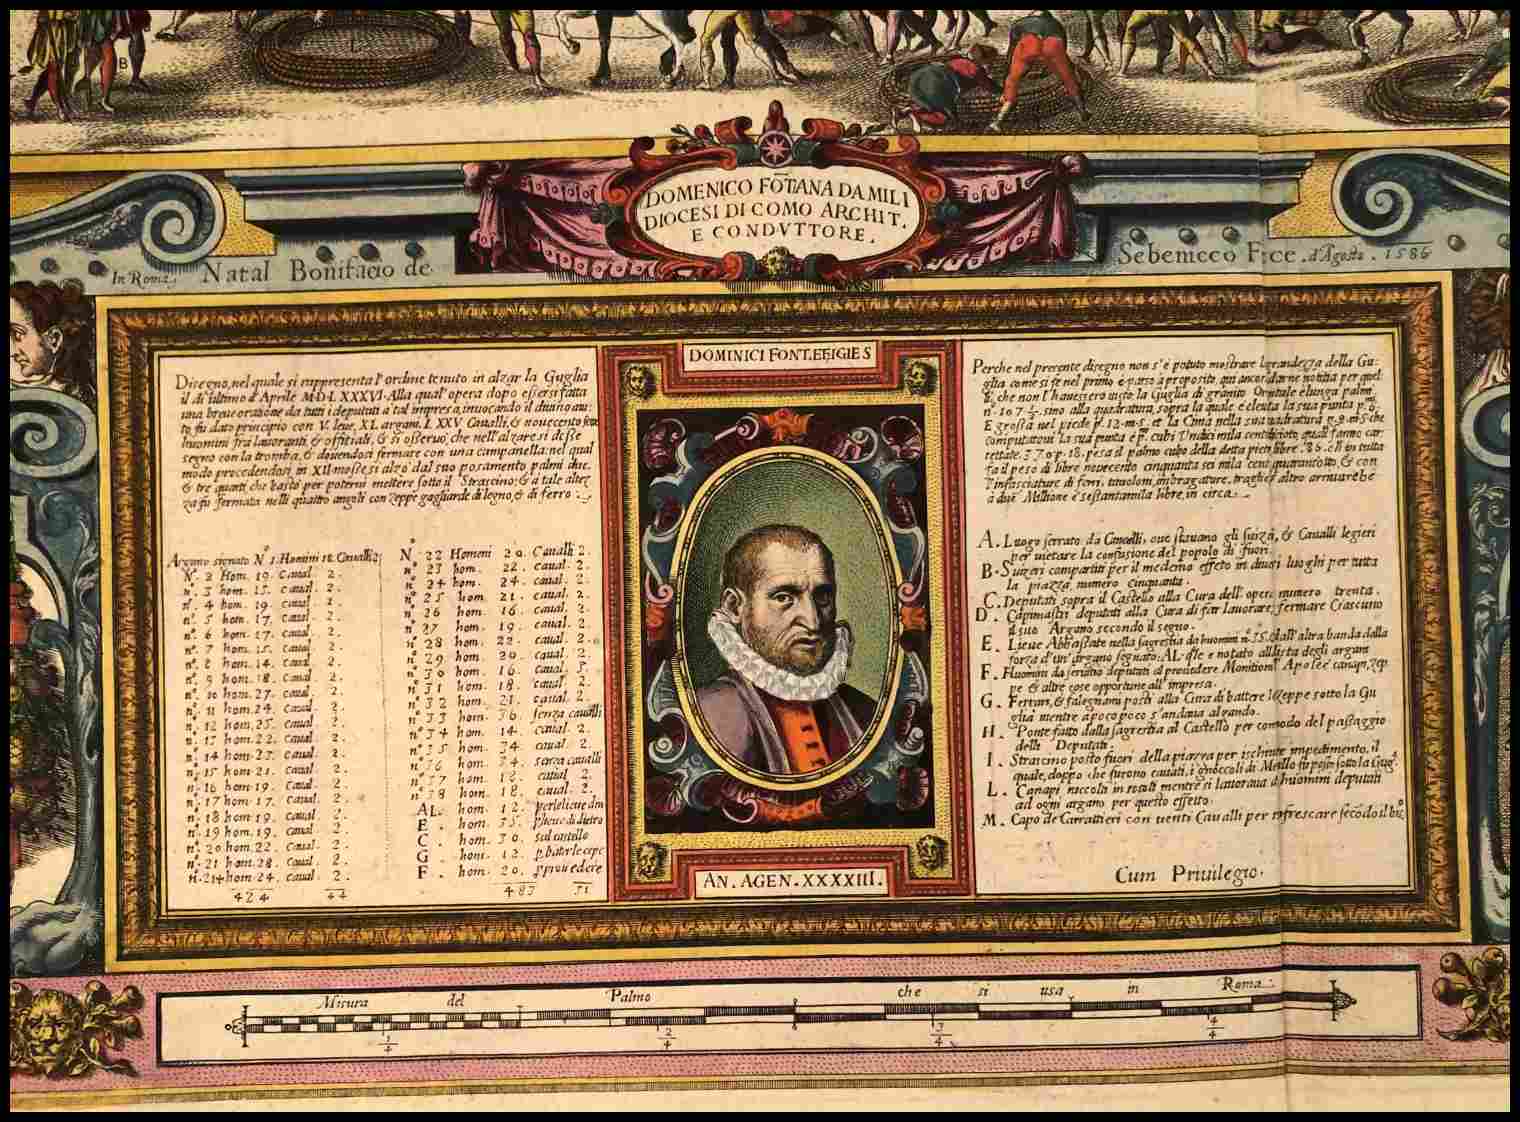 B
L
DOMENICO FŌTANA DA MILI
DIOCESI DI COMO ARCHIT.
E CONDVTTORE.
In Roma. Natal Bonifacio de Sebenicco Fece. d'Agosto. 1586
Disegno, nel quale si rappresenta l'ordine tenuto in alzar la Guglia
il dì ultimo d'Aprile M·D·LXXXVI. Alla qual'opera dopo essersi fatta
una breue oratione da tutti i deputati a tal impresa, inuocando il diuino aiu:
to, fu dato principio con V. leue, XL argani, LXXV Caualli, & nouecento
huomini fra lauoranti, & offitiali, & si osseruò, che nell'alzare si desse
segno con la tromba, & douendosi fermare con una campanella: nel qual
modo procedendosi in XII mosse, si alzò dal suo posamento palmi due,
& tre quarti che bastò per poterui mettere sotto il Strascino; & a tale altez
za fu fermata nelli quattro angoli con zeppe gagliarde di legno, & di ferro.
Argano signato N.º 1. Homini 18. Caualli 2
N.º 2 Hom. 19. caual. 2.
n.º 3 hom. 15. caual. 2.
n.º 4 hom. 19. caual. 2.
n.º 5 hom. 17. caual. 2.
n.º 6 hom. 17. caual. 2.
n.º 7 hom. 15. caual. 2.
n.º 8 hom. 14. caual. 2.
n.º 9 hom. 18. caual. 2.
n.º 10 hom. 27. caual. 2.
n.º 11 hom. 24. caual. 2.
n.º 12 hom. 25. caual. 2.
n.º 13 hom. 22. caual. 2.
n.º 14 hom. 23. caual. 2.
n.º 15 hom. 21. caual. 2.
n.º 16 hom. 19. caual. 2.
n.º 17 hom. 17. caual. 2.
n.º 18 hom. 19. caual. 2.
n.º 19 hom. 19. caual. 2.
n.º 20 hom. 22. caual. 2.
n.º 21 hom. 28. caual. 2.
hom. 24. caual. 2.
424 44
N.º 22 Homeni 20. Caualli 2.
n.º 23 hom. 22. caual. 2.
n.º 24 hom. 24. caual. 2.
n.º 25 hom. 21. caual. 2.
n.º 26 hom. 16. caual. 2.
n.º 27 hom. 19. caual. 2.
n.º 28 hom. 22. caual. 2.
n.º 29 hom. 20. caual. 2.
n.º 30 hom. 16. caual. 3.
n.º 31 hom. 18. caual. 2.
n.º 32 hom. 21. caual. 2.
n.º 33 hom. 36. senza caualli
n.º 34 hom. 14. caual. 2.
n.º 35 hom. 34. caual. 2.
n.º 36 hom. 34. senza caualli
n.º 37 hom. 18. caual. 2.
n.º 38 hom. 18. caual. 2.
AL. hom. 12. per le lieue
E. hom. 35. p lieue di dietro
C. hom. 30. sul castello
G. hom. 12. p bater le cepe
F. hom. 20. p prouedere
483 31
DOMINICI FONT. EFIGIES
AN. AGEN. XXXXIII.
Perche nel presente disegno non s'è potuto mostrare la grandezza della Gu:
glia come si fe nel primo è parso a proposito, qui ancora darne notitia per quel:
li, che non l'hauessero uisto. la Guglia di granito Orientale è lunga palm.
n.º 107 ½. sino alla quadratura, sopra la quale è eleuata la sua punta
E grossa nel piede p. 12. m. 5. et la Cima nella sua quadratura p. 8. m. 5. che
computatoui la sua punta è p. cubi Undici mila
rettate. 370. p. 18. pesa il palmo cubo della detta pietra libre. 86. che in tutta
fa il peso di libre nouecento cinquanta sei mila cent'quarantotto, & con
l'infasciature di ferri, tauoloni, imbragature, traglie, & altro arriuarebe
à due Millione e sessantamila libre, in circa.
A. Luogo serrato da Cancelli, oue stauano gli suizari, & Caualli legieri
per uietare la confusione del popolo di fuori.
B. Suizeri compartiti per il medemo effeto in diuersi luoghi per tutta
la piazza, numero cinquanta.
C. Deputati sopra il Castello alla Cura dell'opera numero trenta.
D. Capimastri deputati alla Cura di far lauorare, fermare Ciascuno
il suo Argano secondo il segno.
E. Lieue Abbassate nella sagrestia da huomini n.º 35. & dall'altra banda dalla
forza d'un'argano segnato. AL. qle e notato alla lista degli argani
F. Huomini da seruitio deputati a prouedere Monitioni canapi, zep
pe & altre cose opportune all'impresa.
G. Ferrari, & falegnami posti alla Cura di battere le zeppe sotto la Gu
glia mentre a poco poco s'andaua alzando.
H. Ponte fatto dalla sagrestia al Castello per comodo del passaggio
delli Deputati.
I. Strascino posto fuori della piazza per ischiuare impedimento, il
quale, doppo che furono cauati, i gnoccoli di Metallo fu posto sotto la Gug.ª
L. Canapi raccolti in rotoli mentre si lauoraua d'huomini deputati
ad ogni argano per questo effetto.
M. Capo de Carrattieri con uenti Caualli per rinfrescare secōdo il bis.º
Cum Priuilegio.
Misura del Palmo che si usa in Roma.
1/4 2/4 3/4 4/4